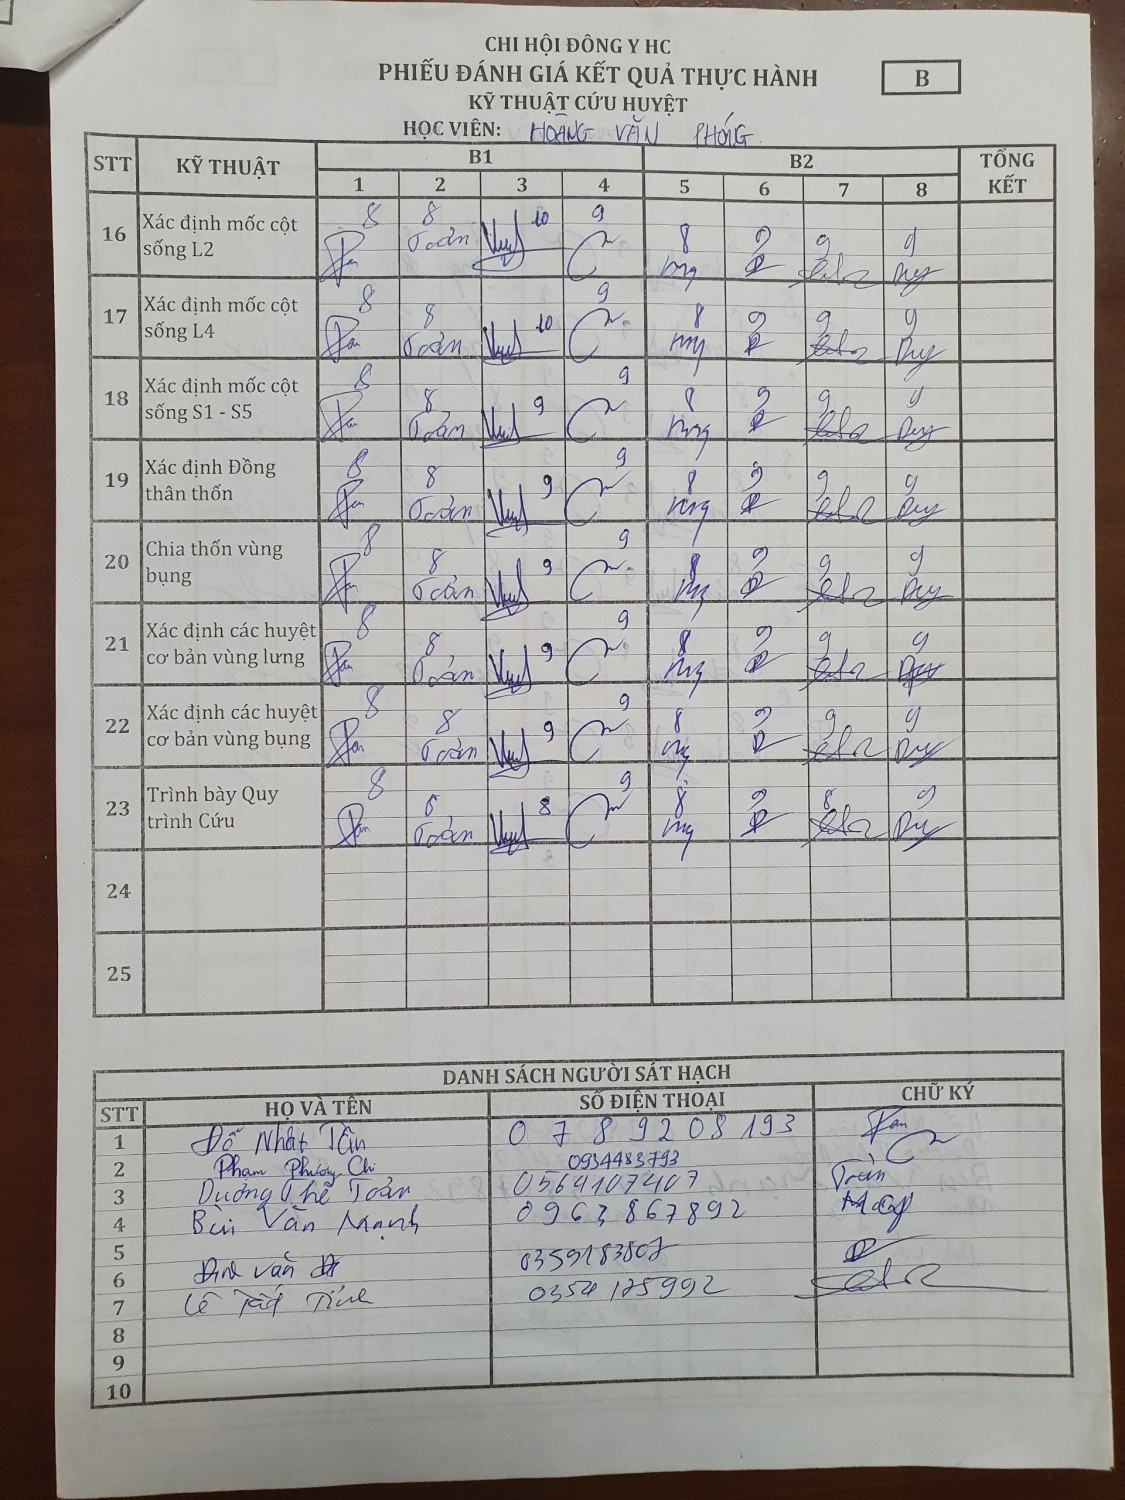 CHI HỘI ĐÔNG Y HC
PHIẾU ĐÁNH GIÁ KẾT QUẢ THỰC HÀNH
B
KỸ THUẬT CỨU HUYỆT
HỌC VIÊN: HOÀNG VĂN PHÓNG
STT KỸ THUẬT B1 B2 TỔNG KẾT
1 2 3 4 5 6 7 8
16 Xác định mốc cột sống L2 8 8 10 9 8 9 9 9
Toản
17 Xác định mốc cột sống L4 8 8 10 9 8 9 9 9
Toản
18 Xác định mốc cột sống S1 - S5 8 8 9 9 8 9 9 9
Toản
19 Xác định Đồng thân thốn 8 8 9 9 8 9 9 9
Toản
20 Chia thốn vùng bụng 8 8 9 9 8 9 9 9
Toản
21 Xác định các huyệt cơ bản vùng lưng 8 8 9 9 8 9 9 9
Toản
22 Xác định các huyệt cơ bản vùng bụng 8 8 9 9 8 9 9 9
Toản
23 Trình bày Quy trình Cứu 8 8 8 9 8 9 8 9
Toản
24
25
DANH SÁCH NGƯỜI SÁT HẠCH
STT HỌ VÀ TÊN SỐ ĐIỆN THOẠI CHỮ KÝ
1 Đỗ Nhât Tân 0789208193
2 Phạm Phương Chi 0934483793
3 Dương Thế Toản 0564107407 Toản
4 Bùi Văn Mạnh 0963867892
5
6 Đinh Văn 0359183807
7 Lê Tất 0354175992
8
9
10